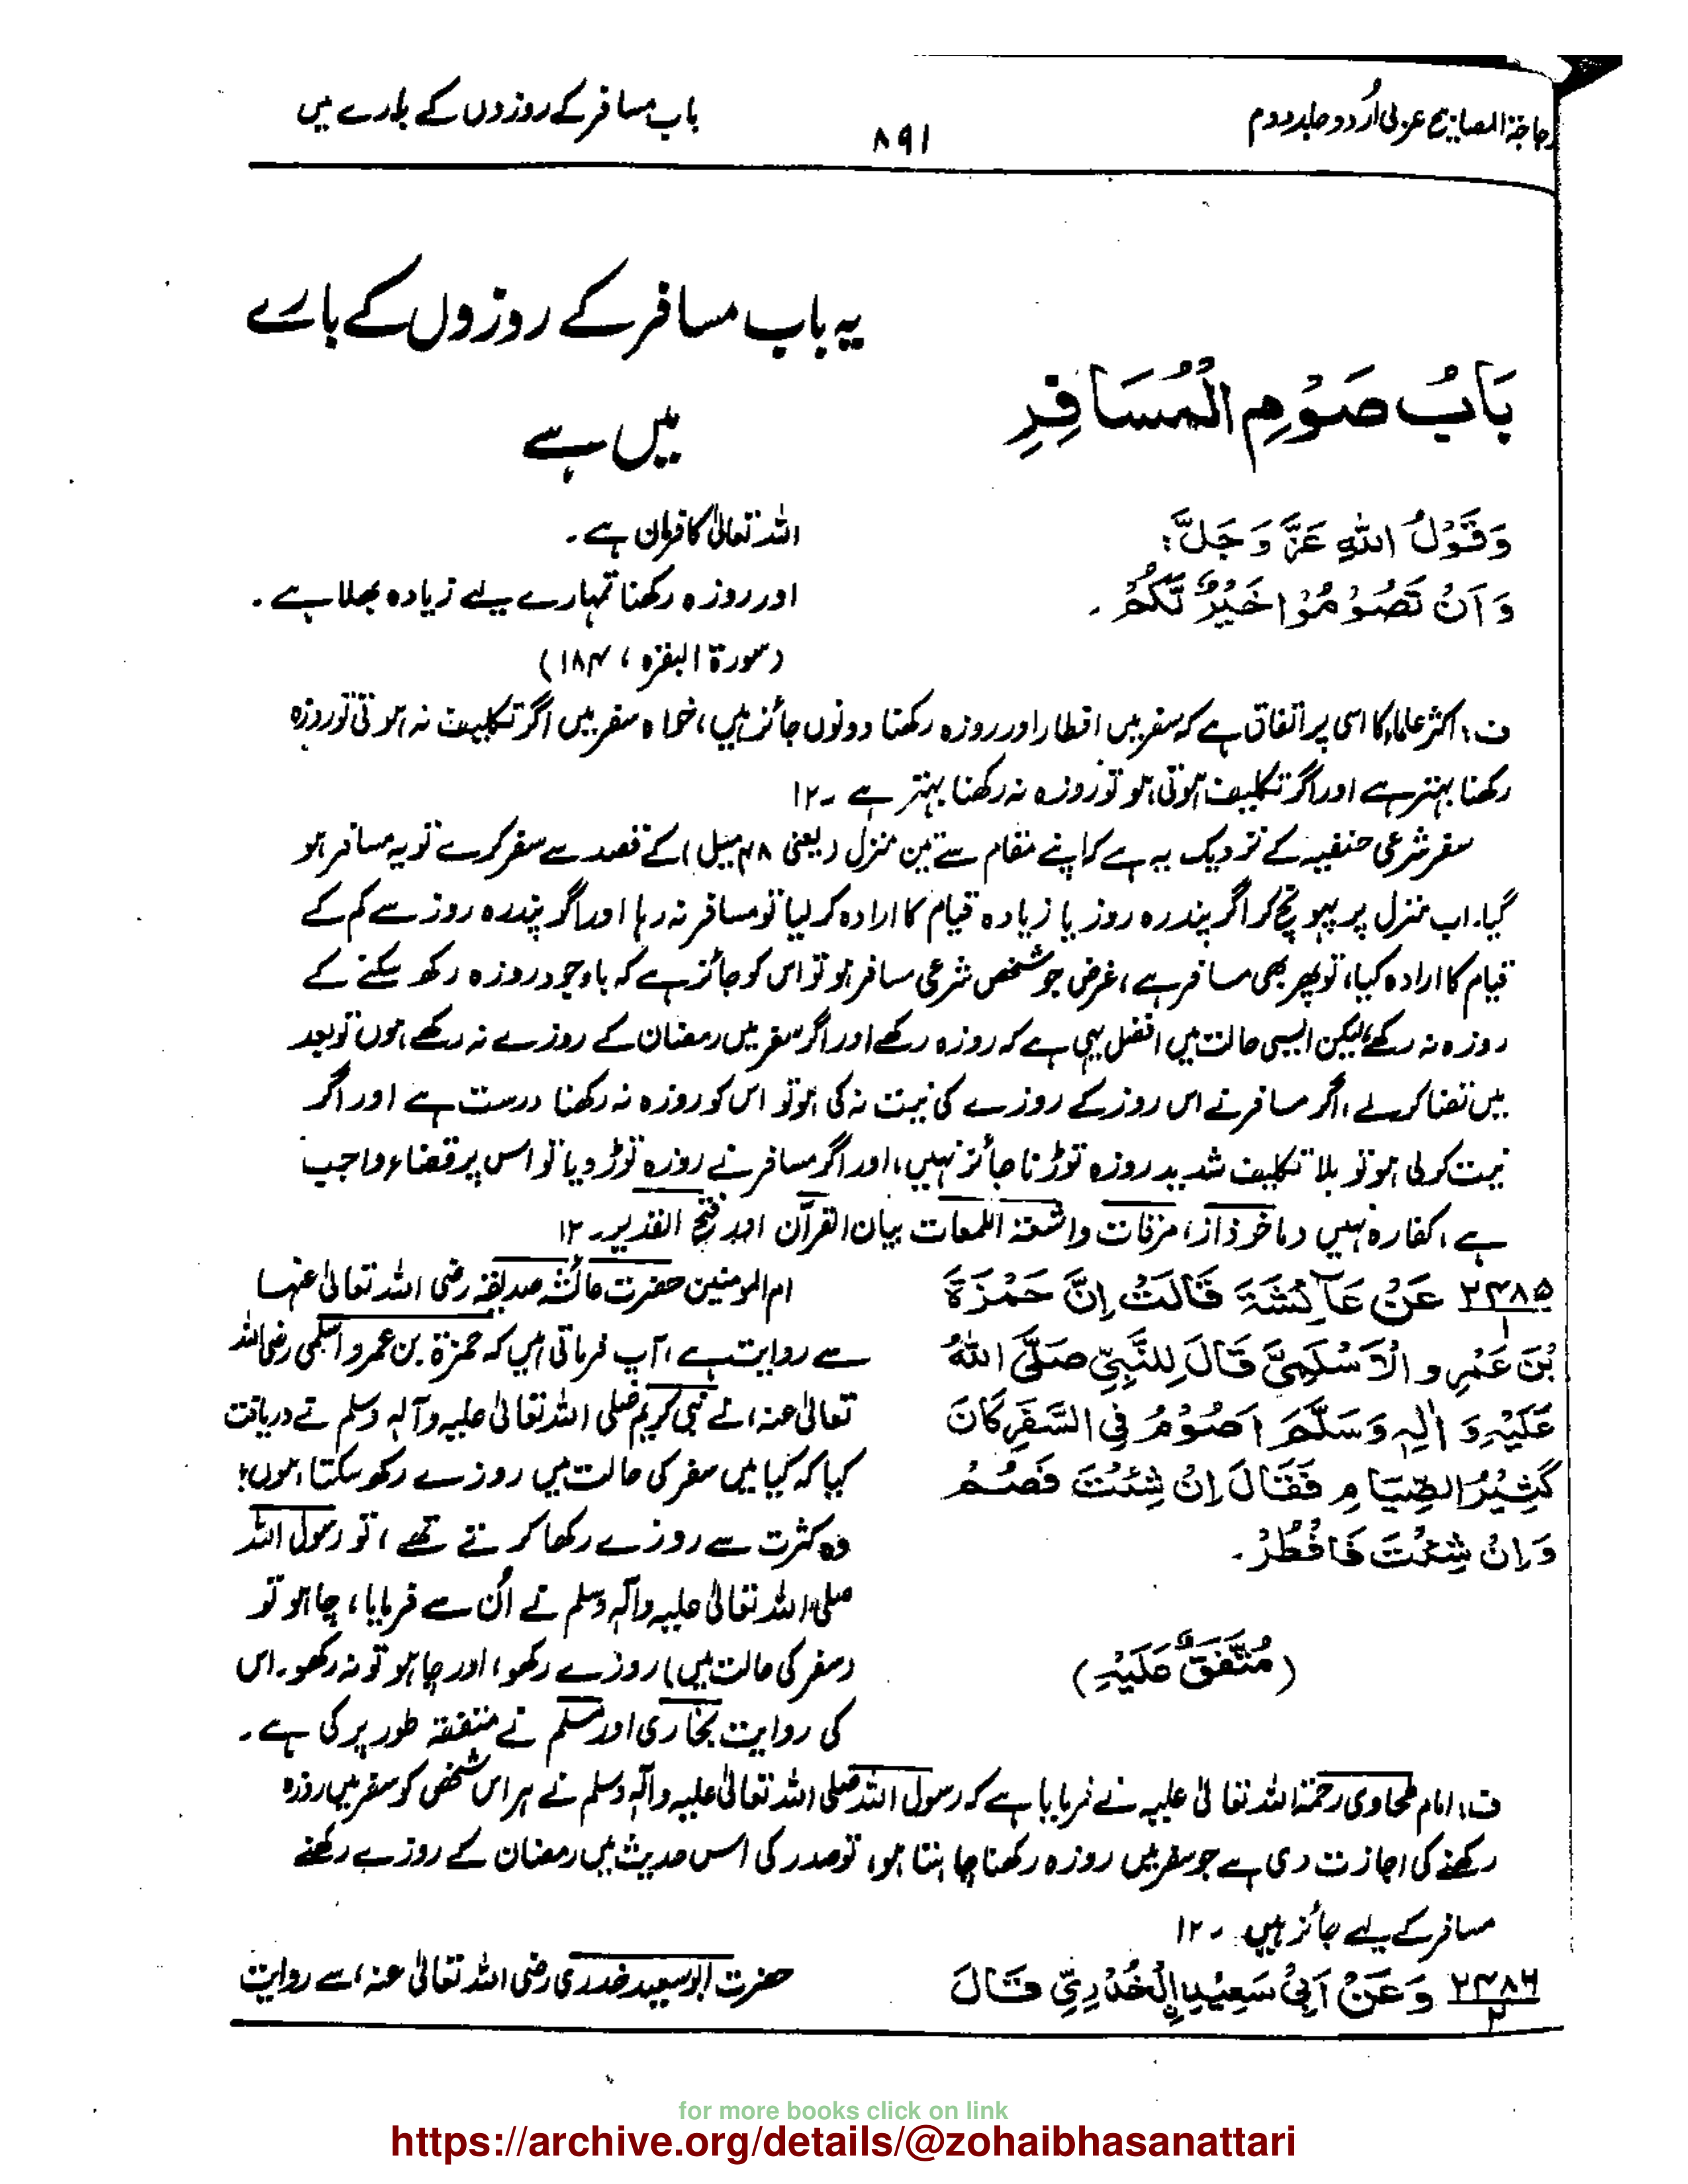 زجاجۃ المصابیح عربی اُردو جلد دوم
۸۹۱
باب مسافر کے روزوں کے بارے میں
بَابُ صَوْمِ الْمُسَافِرِ
یہ باب مسافر کے روزوں کے بارے
میں ہے
وَقَوْلُ اللهِ عَزَّ وَجَلَّ:
وَاَنْ تَصُوْمُوْا خَيْرٌ لَّكُمْ۔
اللہ تعالیٰ کا فرمان ہے۔
اور روزہ رکھنا تمہارے لیے زیادہ بھلا ہے۔
(سورۃ البقرہ ، ۱۸۴)
ف: اکثر علماء کا اسی پر اتفاق ہے کہ سفر میں افطار اور روزہ رکھنا دونوں جائز ہیں، خواہ سفر میں اگر تکلیف نہ ہوتی تو روزہ
رکھنا بہتر ہے اور اگر تکلیف ہوتی ہو تو روزہ نہ رکھنا بہتر ہے ۔۱۲
سفر شرعی حنفیہ کے نزدیک یہ ہے کہ اپنے مقام سے تین منزل (یعنی ۴۸ میل) کے قصد سے سفر کرے تو یہ مسافر ہو
گیا۔ اب منزل پر پہونچ کر اگر پندرہ روز یا زیادہ قیام کا ارادہ کر لیا تو مسافر نہ رہا اور اگر پندرہ روز سے کم کے
قیام کا ارادہ کیا، تو پھر بھی مسافر ہے، غرض جو شخص شرعی مسافر ہو تو اس کو جائز ہے کہ باوجود روزہ رکھ سکنے کے
روزہ نہ رکھے، لیکن ایسی حالت میں افضل یہی ہے کہ روزہ رکھے اور اگر سفر میں رمضان کے روزے نہ رکھے ہوں تو بعد
میں قضا کر لے، اگر مسافر نے اس روز کے روزے کی نیت نہ کی ہو تو اس کو روزہ نہ رکھنا درست ہے اور اگر
نیت کر لی ہو تو بلا تکلیف شدید روزہ توڑنا جائز نہیں، اور اگر مسافر نے روزہ توڑ دیا تو اس پر قضاء واجب
ہے، کفارہ نہیں (ماخوذ از، مرقات واشعۃ اللمعات بیان القرآن اور فتح القدیر۔ ۱۲
۲۴۸۵ عَنْ عَآئِشَةَ قَالَتْ اِنَّ حَمْزَةَ
۱
بْنَ عَمْرٍو الْاَسْلَمِيَّ قَالَ لِلنَّبِيِّ صَلَّى اللهُ
عَلَيْهِ وَاٰلِهٖ وَسَلَّمَ اَصُوْمُ فِي السَّفَرِ كَانَ
كَثِيْرُ الصِّيَامِ فَقَالَ اِنْ شِئْتَ فَصُمْ
وَاِنْ شِئْتَ فَافْطُرْ۔
(مُتَّفَقٌ عَلَيْهِ)
ام المومنین حضرت عائشہ صدیقہ رضی اللہ تعالیٰ عنہا
سے روایت ہے، آپ فرماتی ہیں کہ حمزۃ بن عمرو اسلمی رضی اللہ
تعالیٰ عنہ، نے نبی کریم صلی اللہ تعالیٰ علیہ وآلہٖ وسلم نے دریافت
کیا کہ کیا میں سفر کی حالت میں روزے رکھ سکتا ہوں؛
وہ کثرت سے روزے رکھا کرتے تھے، تو رسول اللہ
صلی اللہ تعالیٰ علیہ وآلہٖ وسلم نے اُن سے فرمایا، چاہو تو
(سفر کی حالت میں) روزے رکھو، اور چاہو تو نہ رکھو۔ اس
کی روایت بخاری اور مسلم نے متفقہ طور پر کی ہے۔
ف: امام طحاوی رحمۃ اللہ تعالیٰ علیہ نے فرمایا ہے کہ رسول اللہ صلی اللہ تعالیٰ علیہ وآلہٖ وسلم نے ہر اس شخص کو سفر میں روزہ
رکھنے کی اجازت دی ہے جو سفر میں روزہ رکھنا چاہتا ہو، تو صدر کی اس حدیث میں رمضان کے روزے رکھنے
مسافر کے لیے جائز ہیں۔ ۱۲
۲۴۸۶ وَعَنْ اَبِيْ سَعِيْدِنِ الْخُدْرِيِّ قَالَ
۲
حضرت ابو سعید خدری رضی اللہ تعالیٰ عنہ، سے روایت
for more books click on link
https://archive.org/details/@zohaibhasanattari